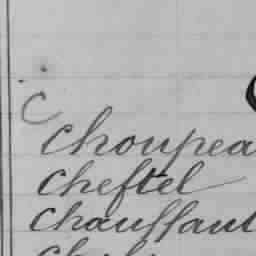 C
Choupea
Cheftel
Chauffaut